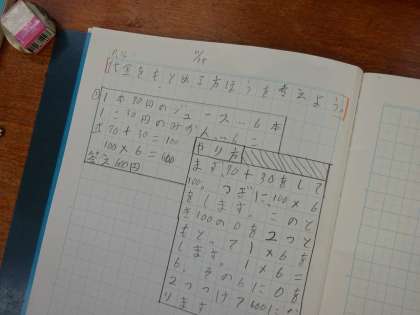 11/25
代金をもとめる方ほうを考えよう。
1本70円のジュース6本
1こ30円のみかん6こ
式70+30=100
100×6=600
答え600円
やり方
まず70+30をして
100、つぎに100×6
をします。このと
き100の0を2つと
とって1×6を
します。1×6=
6、その6に0を
2つつけて600に
ります